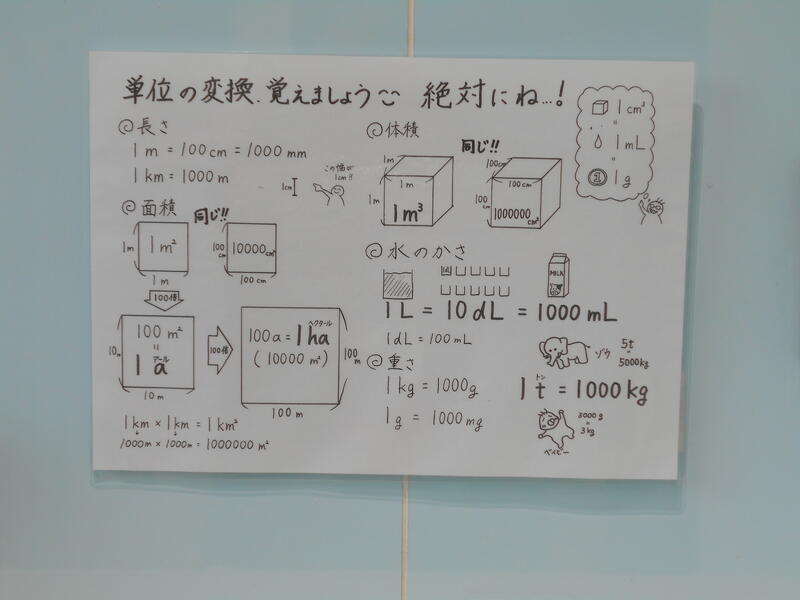 単位の変換、覚えましょう 絶対にね…!
◎長さ
1m = 100cm = 1000mm
1km = 1000m
1cm
この幅が
1cm!!
◎面積
同じ!!
1m
1m²
1m
100cm
10000cm²
100cm
100倍
10m
100m²
=
アール
1a
10m
100倍
ヘクタール
100a = 1ha
(10000m²)
100m
100m
1km × 1km = 1km²
1000m × 1000m = 1000000m²
◎体積
同じ!!
1m
1m
1m
1m³
100cm
100cm
100cm
1000000cm³
1cm³
=
1mL
=
1
1g
◎水のかさ
MILK
1L = 10dL = 1000mL
1dL = 100mL
◎重さ
1kg = 1000g
1g = 1000mg
ゾウ
5t
=
5000kg
トン
1t = 1000kg
3000g
=
3kg
ベイビー